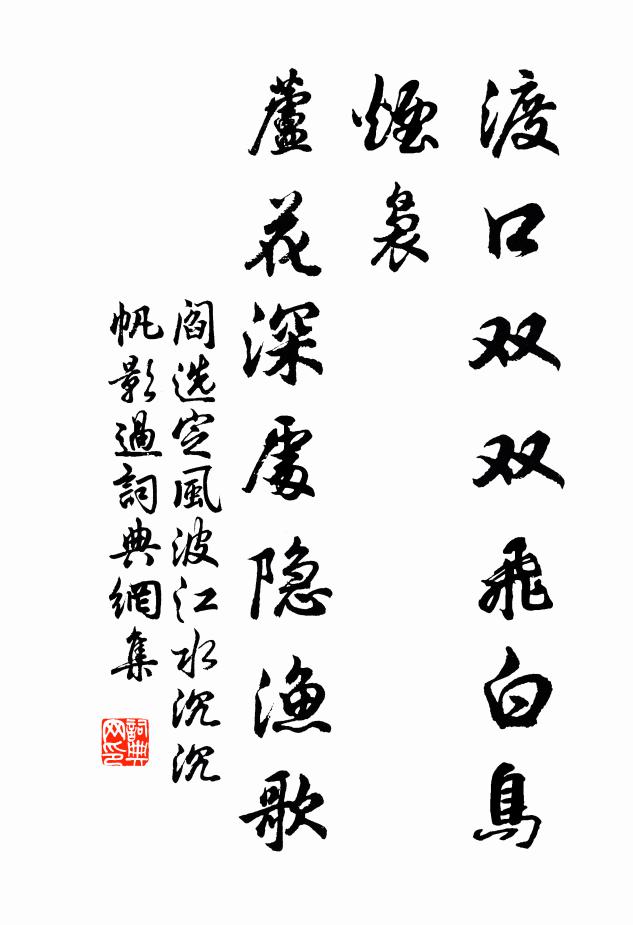 渡口双双飛白鳥
煙裊
蘆花深處隐漁歌
閻选定風波江水沉沉
帆影過詞典網集
詞典网印